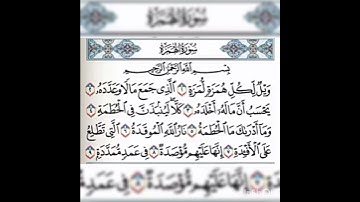 سورة الهمزة
سورة الهمزة
بسم الله الرحمن الرحيم
ويل لكل همزة لمزة ١ الذي جمع مالا وعدده ٢
يحسب أن ماله أخلده ٣ كلا لينبذن في الحطمة ٤
وما أدراك ما الحطمة ٥ نار الله الموقدة ٦ التي تطلع
على الأفئدة ٧ إنها عليهم مؤصدة ٨ في عمد ممددة ٩